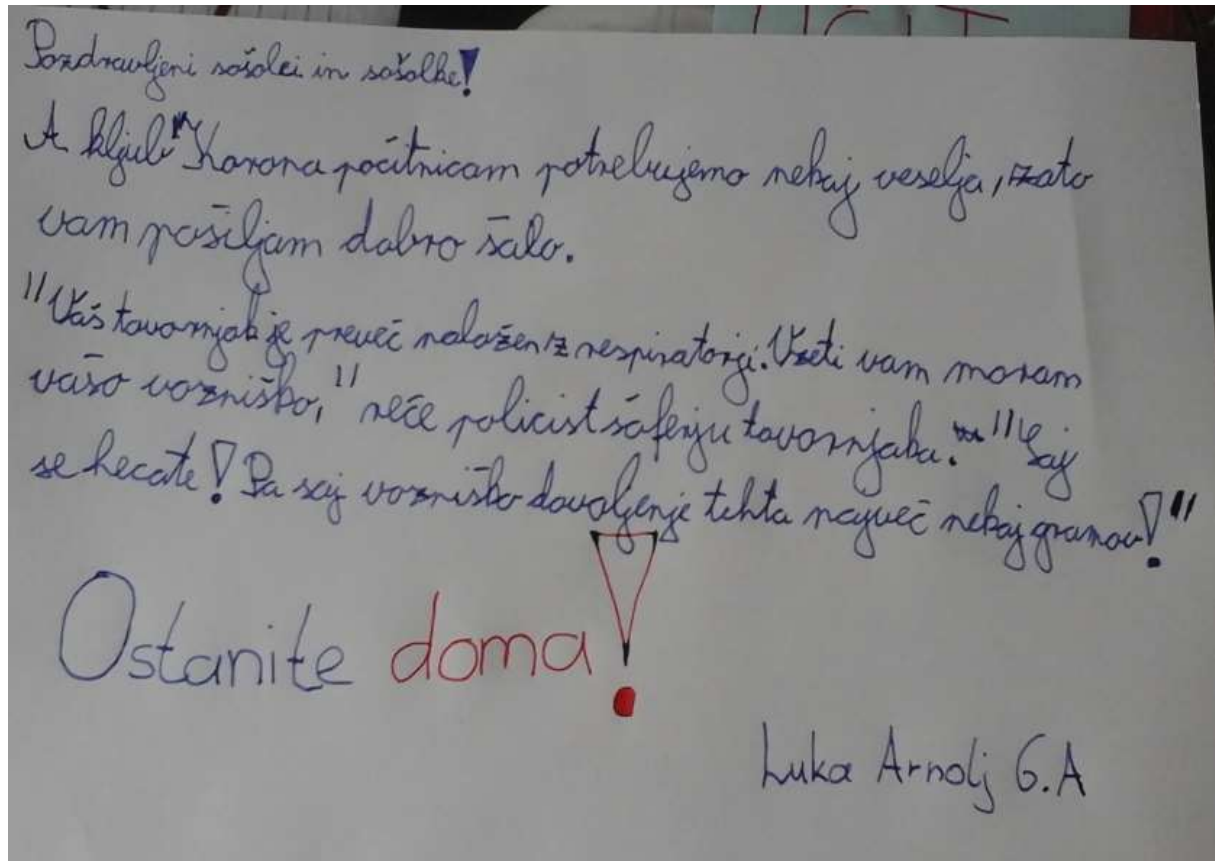 UČIT
Pozdravljeni sošolci in sošolke!
A kljub "Korona počitnicam potrebujemo nekaj veselja, zato
vam pošiljam dobro šalo.
"Vaš tovornjak je preveč naložen z respiratorji. Vzeti vam moram
vašo vozniško," reče policist šoferju tovornjaka. "Saj
se hecate! Pa saj vozniško dovoljenje tehta največ nekaj gramov!"
Ostanite doma!
Luka Arnolj 6.A